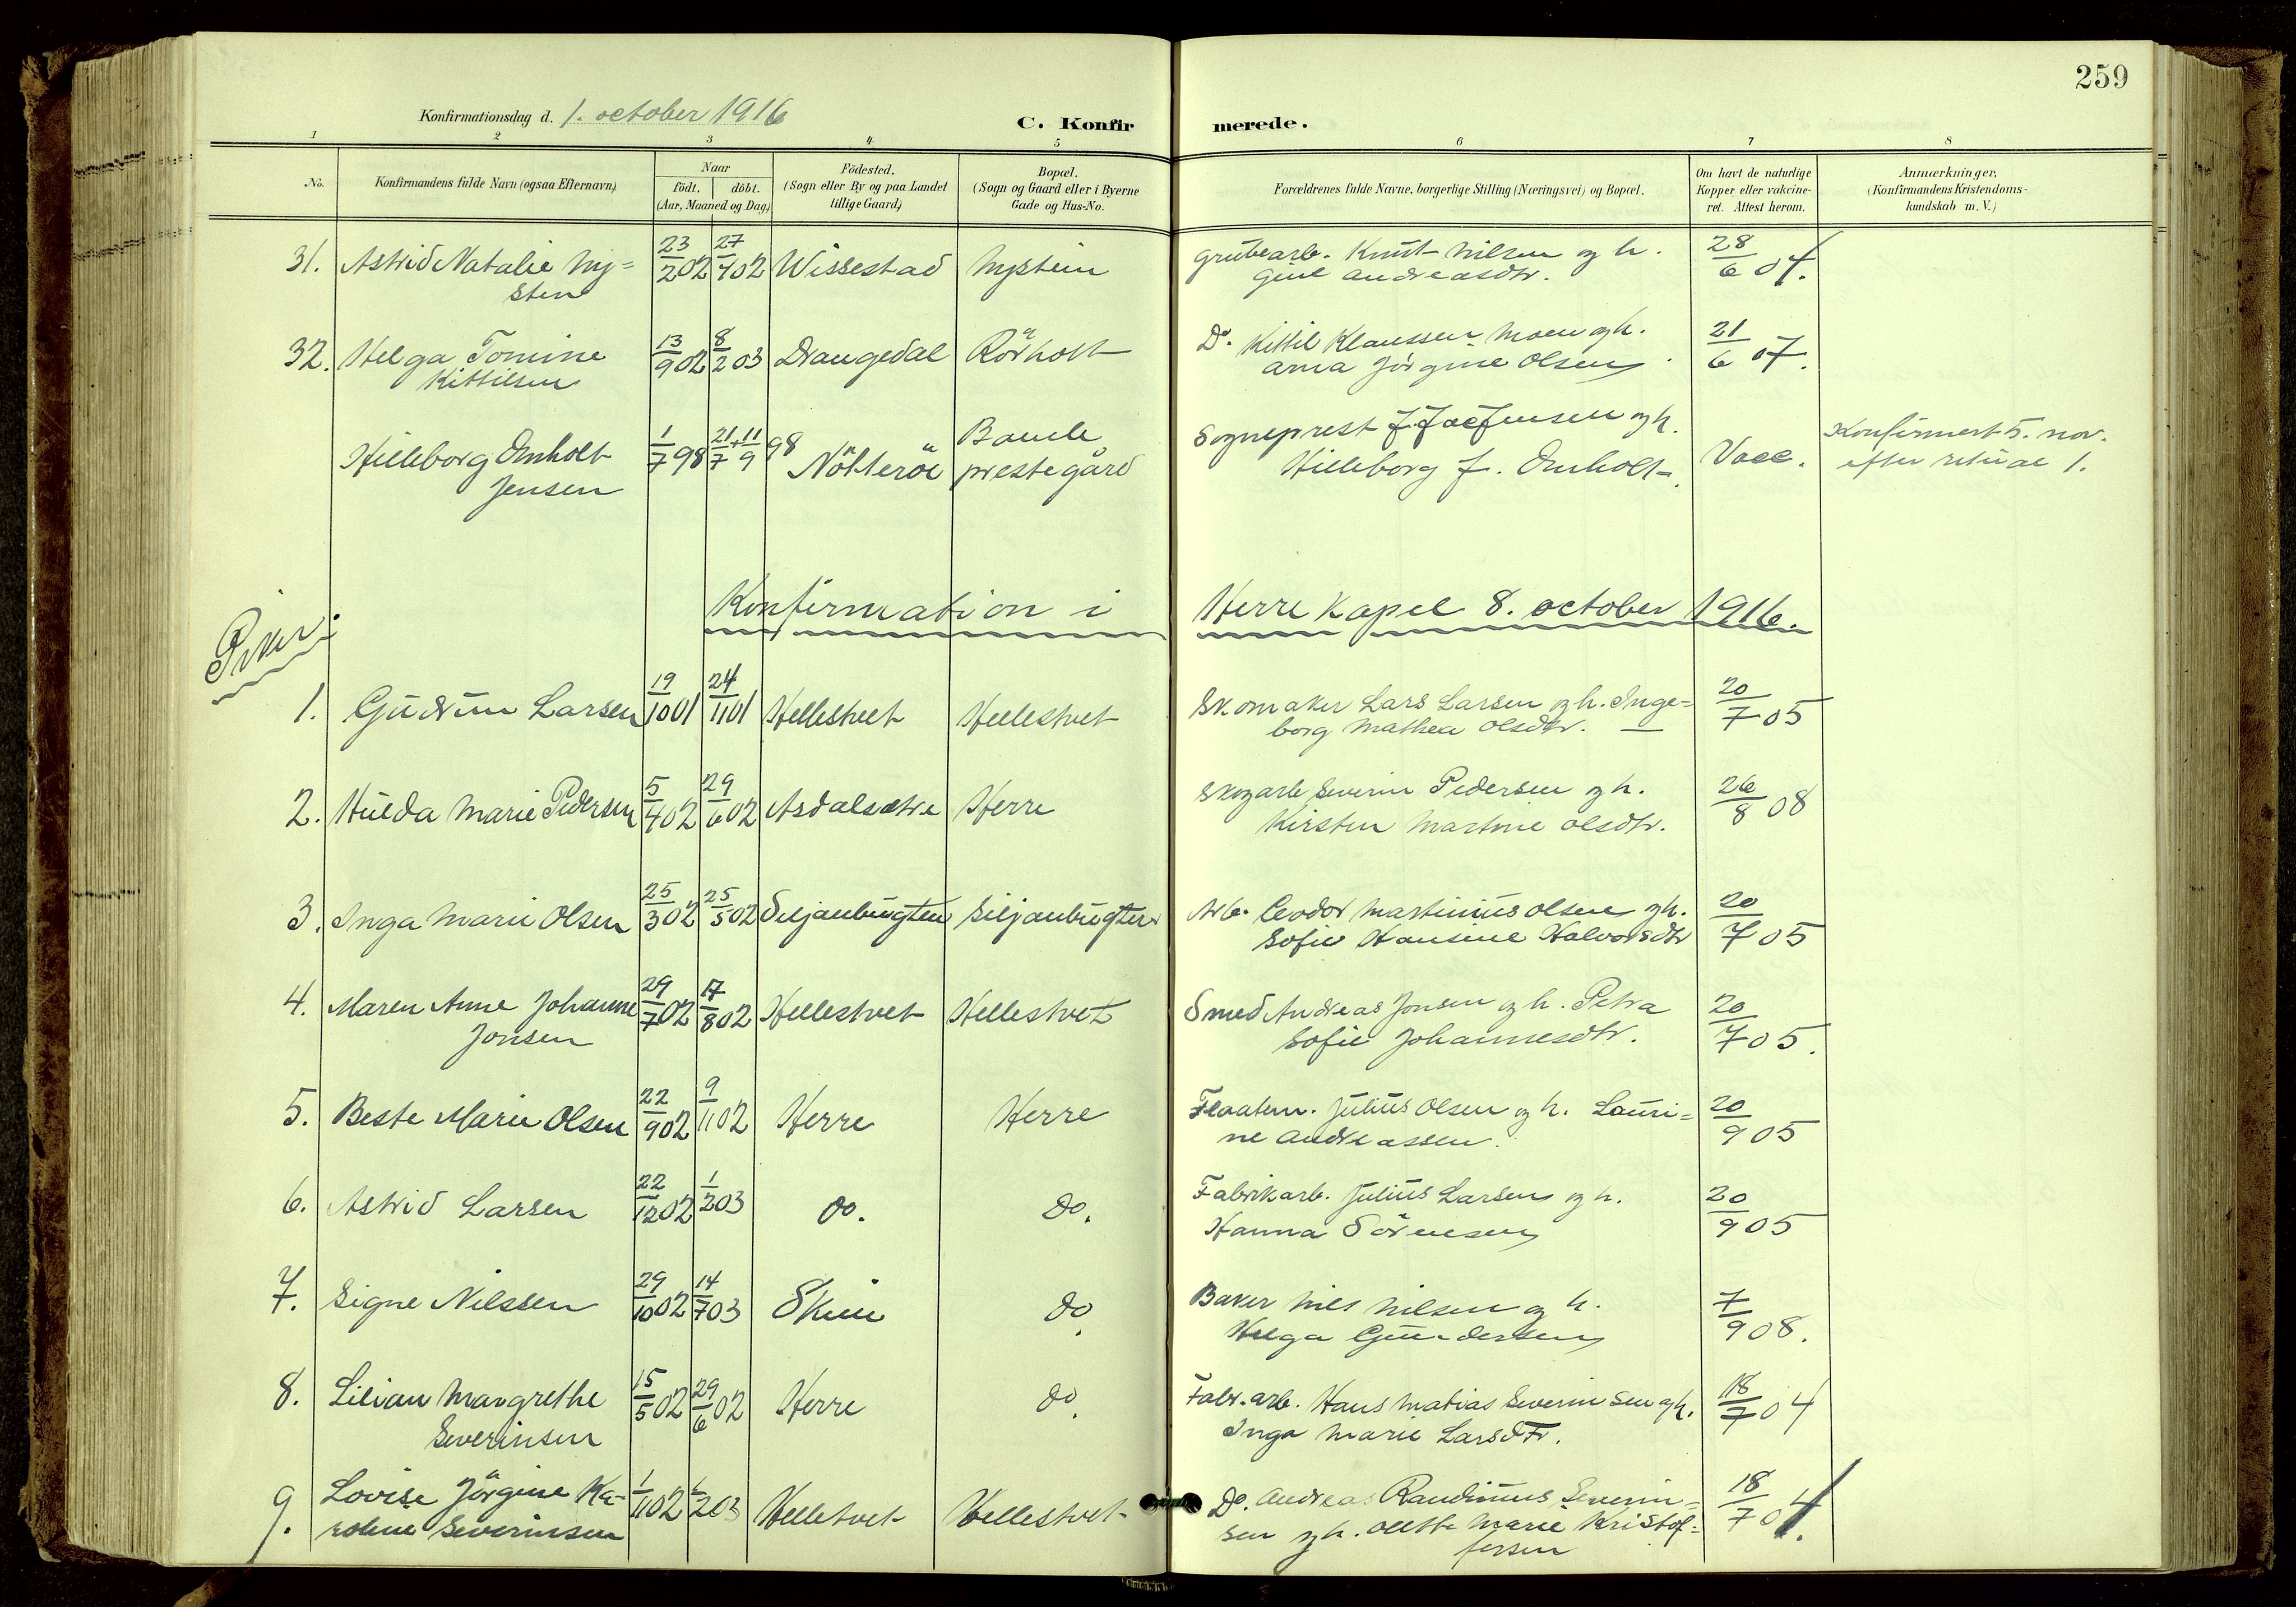 259
Konfirmationsdag d. 1. october 1916
C. Konfirmerede.
1 2 3 4 5 6 7 8
No. Konfirmandens fulde Navn (ogsaa Efternavn) Naar födt. döbt. (Aar, Maaned og Dag) Födested. (Sogn eller By og paa Landet tillige Gaard) Bopæl. (Sogn og Gaard eller i Byerne Gade og Hus-No. Forældrenes fulde Navne, borgerlige Stilling (Næringsvei) og Bopæl. Om havt de naturlige Kopper eller vakcineret. Attest herom. Anmærkninger. (Konfirmandens Kristendomskundskab m. V.)
31. Astrid Natalie Ny= 23/2 02 27/4 02 Wissestad Nystein grubearb. Knut Nilsen og h. 28/6 04.
sten gine Andreasdtr.
32. Helga Tomine 13/9 02 8/2 03 Drangedal Rörholt Do. Kittil Klaussen Moen og h. 21/6 07.
Kittilsen Anna Jörgine Olsen
Hilleborg Omholt 1/7 98 21/7 + 11/9 98 Nötteröe Bamle Sogneprest Jensen og h. Vacc. Konfirmert 5. nov.
Jensen prestegård Hilleborg f. Omholt efter ritual 1.
Konfirmation i Herre Kapel 8. october 1916.
Piker:
1. Gudrun Larsen 19/10 01 24/11 01 Hellestvet Hellestvet Skomaker Lars Larsen og h. Inge= 20/7 05
borg Mathea Olsdtr.
2. Hulda Marie Pedersen 5/4 02 29/6 02 Asdalsætre Herre Skogarb. Severin Pedersen og h. 26/8 08
Kirsten Martine Olsdtr.
3. Inga Marie Olsen 25/3 02 25/5 02 Siljanbugten Siljanbugten Arb. Teodor Martinius Olsen og h. 20/7 05
Sofie Hansine Halvorsdtr
4. Maren Anne Johanne 29/7 02 17/8 02 Hellestvet Hellestvet Smed Andreas Jonsen og h. Petra 20/7 05.
Jonsen Sofie Johannesdtr.
5. Beste Marie Olsen 22/9 02 9/11 02 Herre Herre Flaatem. Julius Olsen og h. Lauri= 20/9 05
ne Andreassen.
6. Astrid Larsen 22/12 02 1/2 03 do. do. Fabrikarb. Julius Larsen og h. 20/9 05
Hanna Sörensen
7. Signe Nilssen 29/10 02 14/7 03 Skien do. Baker Nils Nilsen og h. 7/9 08.
Helga Gundersen
8. Lilian Margrethe 15/5 02 29/6 02 Herre do. Fabr.arb. Hans Matias Severinsen og h. 18/7 04
Severinsen Inga Marie Larsdtr.
9. Lovise Jörgine Ka- 1/11 02 1/2 03 Helletvet Hellestvet Do. Andreas Randinius Severin= 18/7 04.
roline Severinsen sen og h. Olette Marie Kristof=
fersen